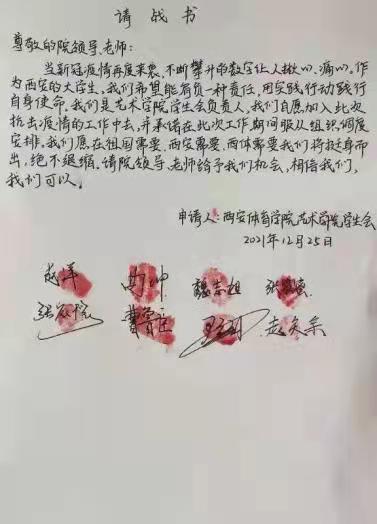 请战书
尊敬的院领导、老师：
当新冠疫情再度来袭，不断攀升的数字让人揪心、痛心。作
为西安的大学生，我们希望能肩负一种责任，用实践行动践行
自身使命。我们是艺术学院学生会负责人，我们自愿加入此次
抗击疫情的工作中去，并承诺在此次工作期间服从组织调度
安排。我们愿在祖国需要、西安需要、西体需要我们将挺身而
出，绝不退缩。请院领导、老师给予我们机会，相信我们，
我们可以。
申请人：西安体育学院艺术学院学生会
2021年12月25日